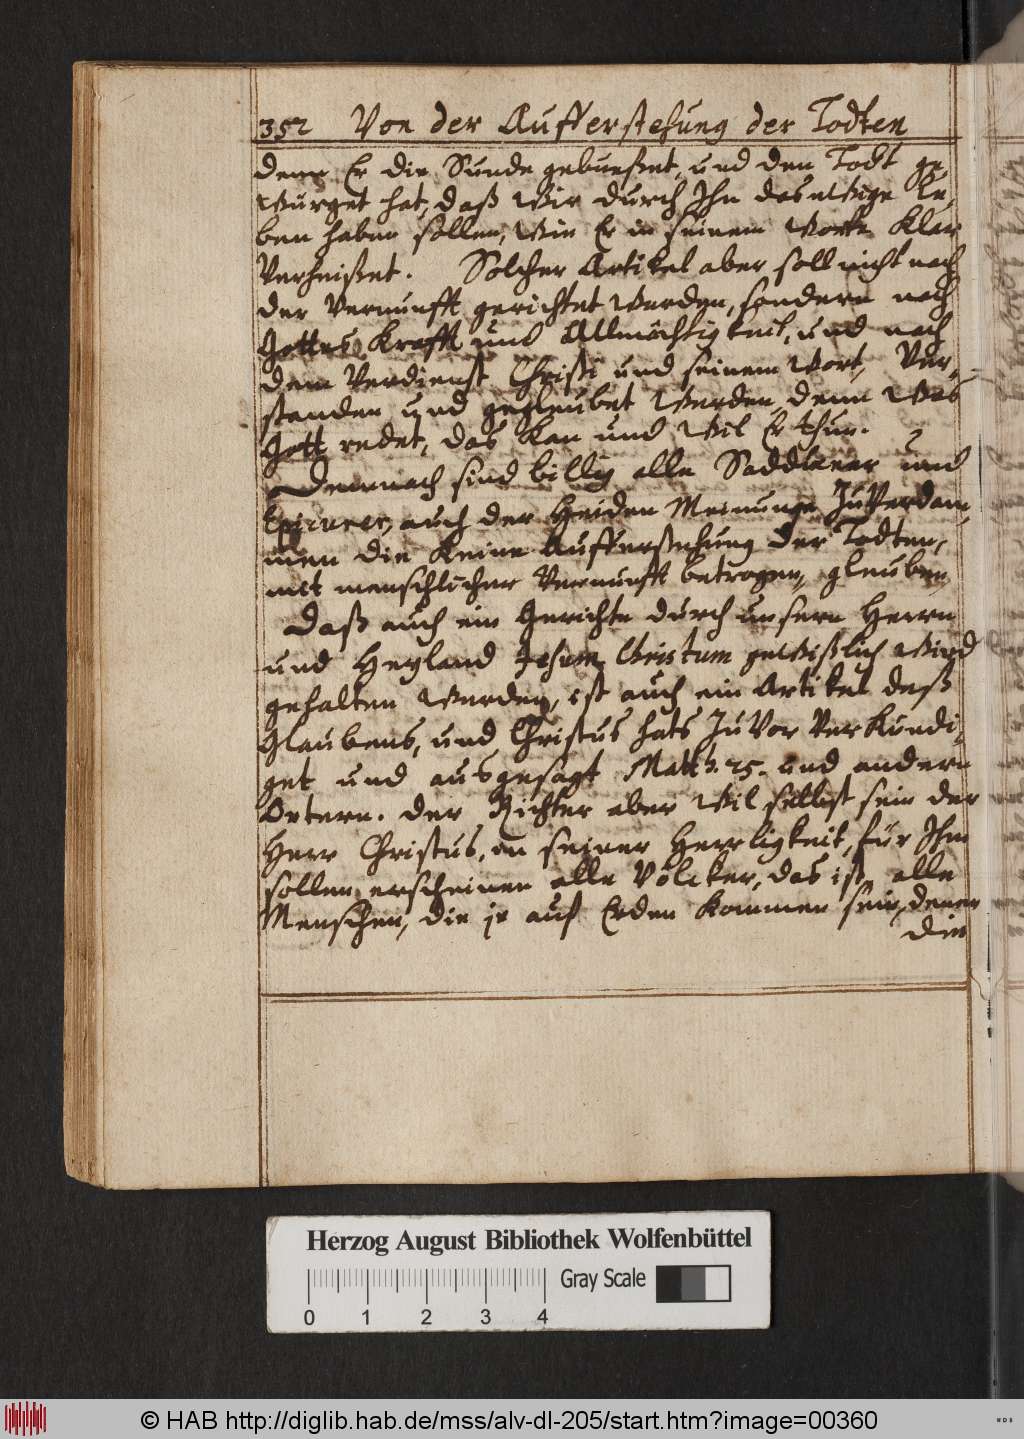 352 Von der Aufferstehung der Todten
denn Er die Sunde gebueßet, und den Todt ge,
Würget hat, daß Wir durch Ihn das eWige le,
ben haben sollen, Wie Er in seinem Worte Klar
Verheißet. Solcher Artikel aber soll nicht nach
der Vernunfft gerichtet Werden, sondern nach
Gottes Krafft und Allmächtigkeit, und nach
dem Verdienst Christi und seinem Wort, Ver,
standen und gegleubet Werden, denn Was
Gott redet, das Kan und Wil Er thun.
Demnach sind billig alle Sadducaeer und
Epicurer, auch der Heiden Meinunge ZuVerdam,
men die Keine Aufferstehung der Todten,
mit menschlicher Vernunfft betrogen, gleuben,
Daß auch ein Gerichte durch unsern Herrn
und Heyland Jesum Christum geWißlich Wird
gehalten Werden, ist auch ein Artikel deß
Glaubens, und Christus hats ZuVor VerKündi,
get und ausgesagt Matth. 25. und andern
Ortern. Der Richter aber Wil selbst sein der
Herr Christus, in seiner Herrligkeit, für Ihm
sollen erscheinen alle Völcker, das ist, alle
Menschen, die je auf Erden kommen sein, denen
die
Herzog August Bibliothek Wolfenbüttel
Gray Scale
0 1 2 3 4
© HAB http://diglib.hab.de/mss/alv-dl-205/start.htm?image=00360